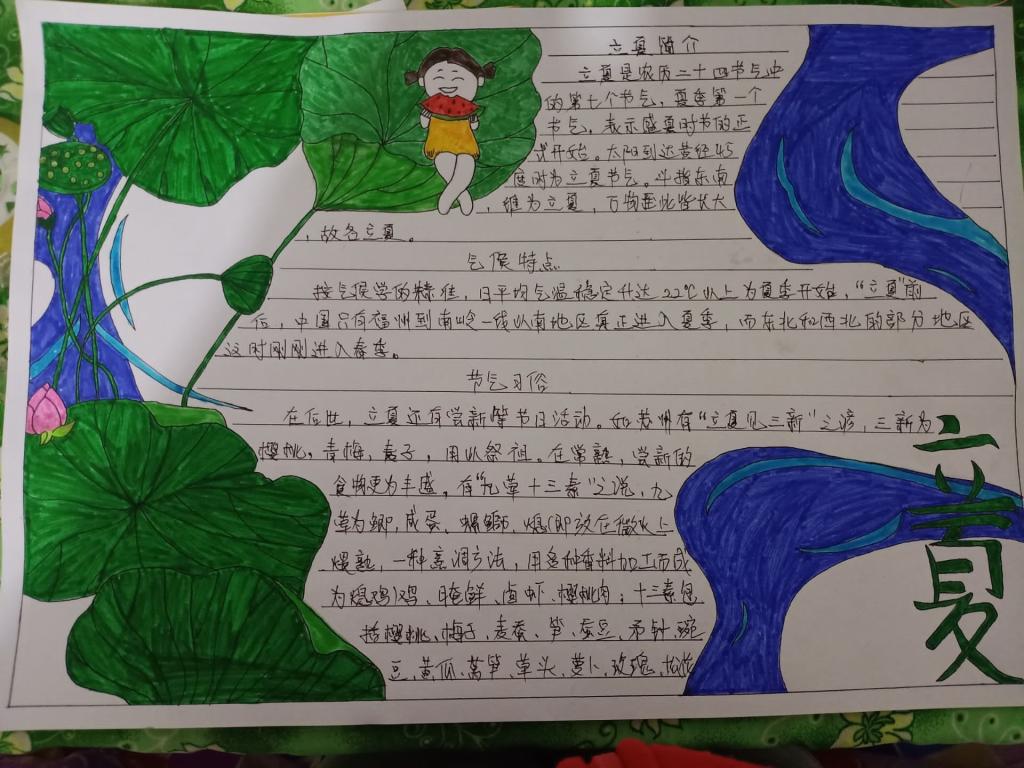 立夏简介
立夏是农历二十四节气中
的第七个节气，夏季第一个
节气，表示盛夏时节的正
式开始。太阳到达黄经45
度时为立夏节气。斗指东南
，维为立夏，万物至此皆长大
，故名立夏。
气候特点
按气候学的标准，日平均气温稳定升达22℃以上为夏季开始，“立夏”前
后，中国只有福州到南岭一线以南地区真正进入夏季，而东北和西北的部分地区
这时刚刚进入春季。
节气习俗
在后世，立夏还有尝新等节日活动。如苏州有“立夏见三新”之谚，三新为
樱桃，青梅，麦子，用以祭祖。在常熟，尝新的
食物更为丰盛，有“九荤十三素”之说，九
荤为鲫，咸蛋、螺蛳、熄（即放在微火上
煨熟，一种烹调方法，用多种香料加工而成
为熄鸡）鸡、腌鲜、卤虾、樱桃肉；十三素包
括樱桃、梅子、麦蚕、笋、蚕豆、矛针、豌
豆、黄瓜、莴笋、草头、萝卜、玫瑰、松花
立夏